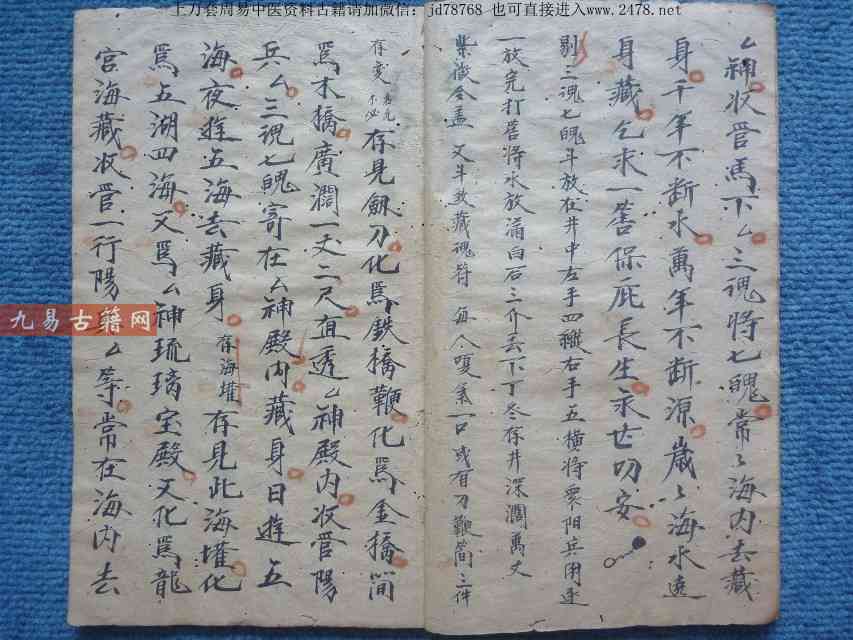 上万套周易中医资料古籍请加微信：jd78768 也可直接进入www.2478.net
厶神收管馬下厶三魂將七魄常々海内去藏
身千年不断水萬年不断源歲々海水遶
身藏乞求一筶保庇長生永世叨安
剔三魂七魄斗放在井中左手四縱右手五横將眾陽兵用逐
一放完打筶將水放滿白石三介去下丁冬存井深濶萬丈
紫微令盖又斗敕藏魂符每人嗄氣一口或有刀鞭简三件
存变 不必 存見劍刀化爲鉄橋鞭化爲金橋简
爲木橋廣濶一丈二尺直透厶神殿内收管陽
兵厶三魂七魄寄在厶神殿内藏身日遊五
海夜遊五海去藏身 存海墐 存見此海墐化
爲五湖四海又爲厶神琉璃宝殿又化爲龍
宫海藏收管一行陽 厶等常在海内去
九易古籍网